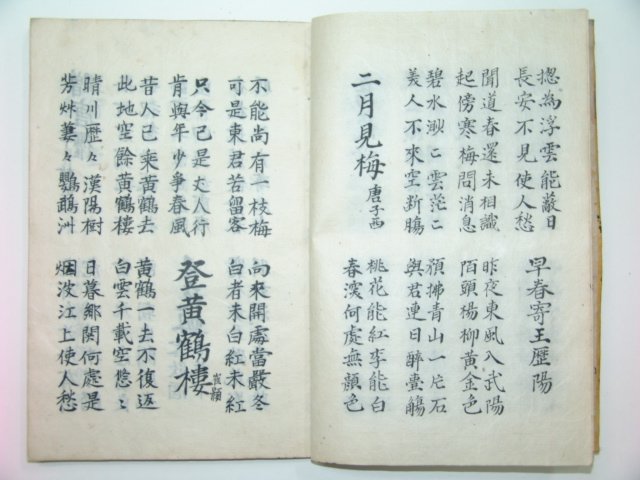 摠為浮雲能蔽日
長安不見使人愁
早春寄王歷陽
聞道春還未相識
起傍寒梅問消息
昨夜東風入武陽
陌頭楊柳黃金色
碧水渺〻雲茫〻
美人不來空斷腸
預拂青山一片石
與君連日醉壺觴
二月見梅 唐子西
桃花能紅李能白
春深何處無顏色
不能尚有一枝梅
可是東君苦留客
向來開處當嚴冬
白者未白紅未紅
只今已是丈人行
肯與年少爭春風
登黃鶴樓 崔顥
昔人已乘黃鶴去
此地空餘黃鶴樓
黃鶴一去不復返
白雲千載空悠〻
晴川歷々漢陽樹
芳艸萋々鸚鵡洲
日暮鄉関何處是
烟波江上使人愁